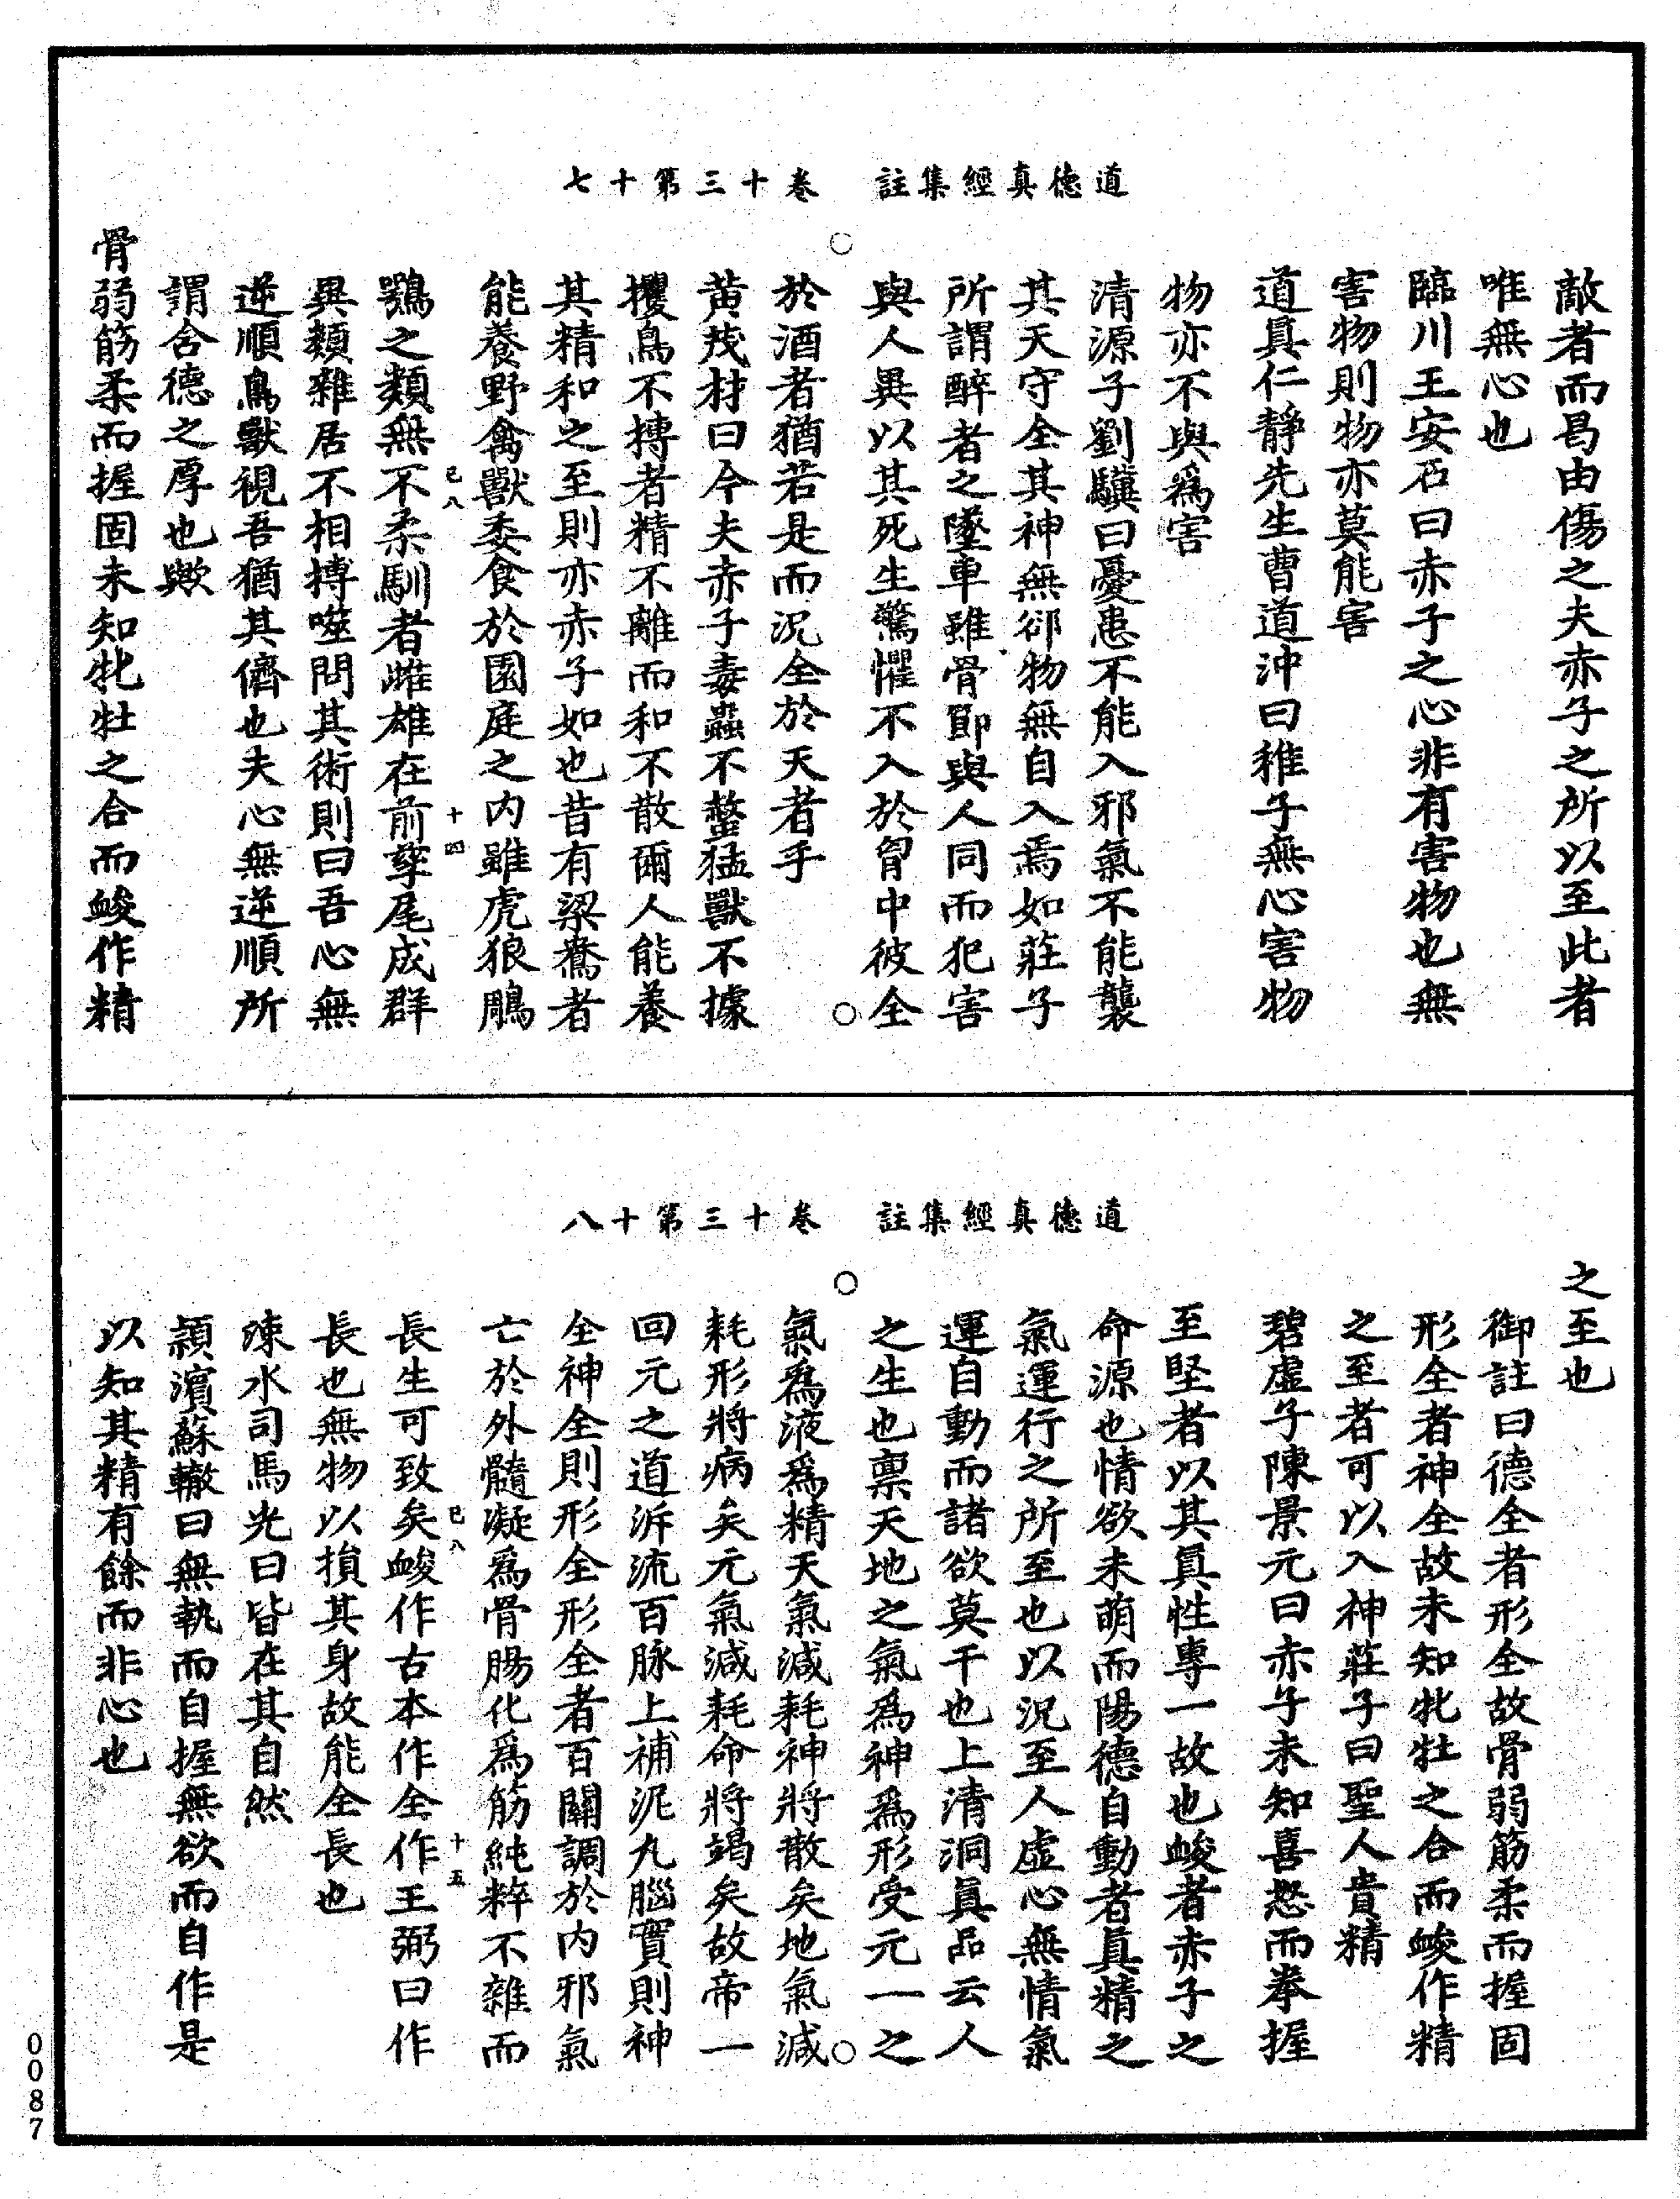 道德真經集註 卷十三第十七
敵者而曷由傷之夫赤子之所以至此者
唯無心也
臨川王安石曰赤子之心非有害物也無
害物則物亦莫能害
道真仁靜先生曹道沖曰稚子無心害物
物亦不與爲害
清源子劉驥曰憂患不能入邪氣不能襲
其天守全其神無郤物無自入焉如莊子
所謂醉者之墜車雖骨節與人同而犯害
與人異以其死生驚懼不入於胷中彼全
於酒者猶若是而況全於天者乎
黄茂材曰今夫赤子毒蟲不螫猛獸不據
攫鳥不搏者精不離而和不散爾人能養
其精和之至則亦赤子如也昔有梁鴦者
能養野禽獸委食於園庭之内雖虎狼鵰
鶚之類無不柔馴者雌雄在前孳尾成群
異類雜居不相搏噬問其術則曰吾心無
逆順鳥獸視吾猶其儕也夫心無逆順所
謂含德之厚也歟
骨弱筋柔而握固未知牝牡之合而䘒作精
已八
十四
道德真經集註 卷十三第十八
之至也
御註曰德全者形全故骨弱筋柔而握固
形全者神全故未知牝牡之合而䘒作精
之至者可以入神莊子曰聖人貴精
碧虛子陳景元曰赤子未知喜怒而拳握
至堅者以其真性專一故也䘒者赤子之
命源也情欲未萌而陽德自動者真精之
氣運行之所至也以況至人虛心無情氣
運自動而諸欲莫干也上清洞真品云人
之生也禀天地之氣爲神爲形受元一之
氣爲液爲精天氣減耗神將散矣地氣減
耗形將病矣元氣減耗命將竭矣故帝一
回元之道泝流百脉上補泥丸腦實則神
全神全則形全形全者百關調於内邪氣
亡於外髓凝爲骨腸化爲筋純粹不雜而
長生可致矣䘒作古本作全作王弼曰作
長也無物以損其身故能全長也
涑水司馬光曰皆在其自然
潁濱蘇轍曰無執而自握無欲而自作是
以知其精有餘而非心也
已八
十五
0087